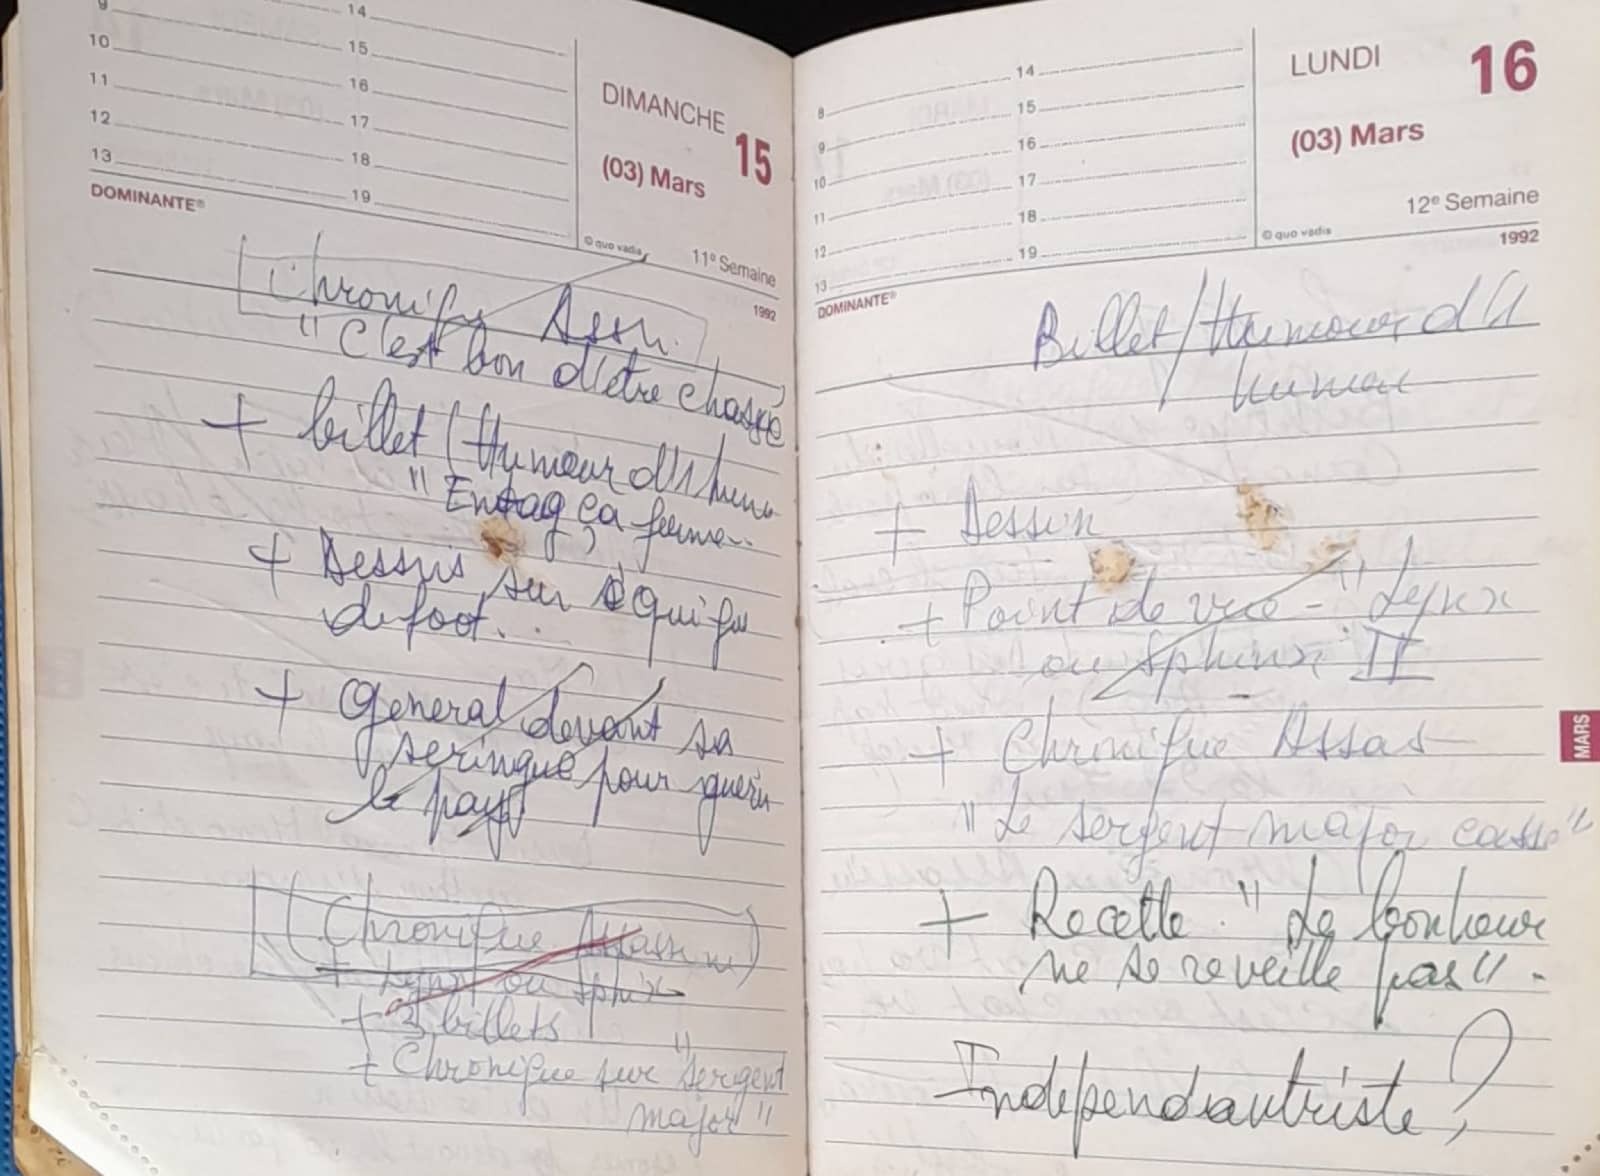 9 14
10 15
11 16
12 17
13 18
19
DIMANCHE 15
(03) Mars
DOMINANTE®
© quo vadis
11e Semaine
1992
Chronique Assa.
"C'est bon d'être chassé
+ billet / Humour d'1 hum
"Entag ça ferme...
+ Dessins sur équipe
de foot.
+ General devant sa
seringue pour guérir
le pays
(Chronique Assassine)
+ Lynx ou sphinx
+ 3 billets
+ Chronique sur "sergent
major"
8 14
9 15
10 16
11 17
12 18
13 19
LUNDI 16
(03) Mars
12e Semaine
© quo vadis
1992
DOMINANTE®
Billet / Humour d'1
humeur
+ Dessin
+ Point de vue - "Lynx
ou Sphinx" II
+ Chronique Assas
"Le sergent major casse"
+ Recette. "Le bonheur
ne se reveille pas".
Independautriste ?
MARS